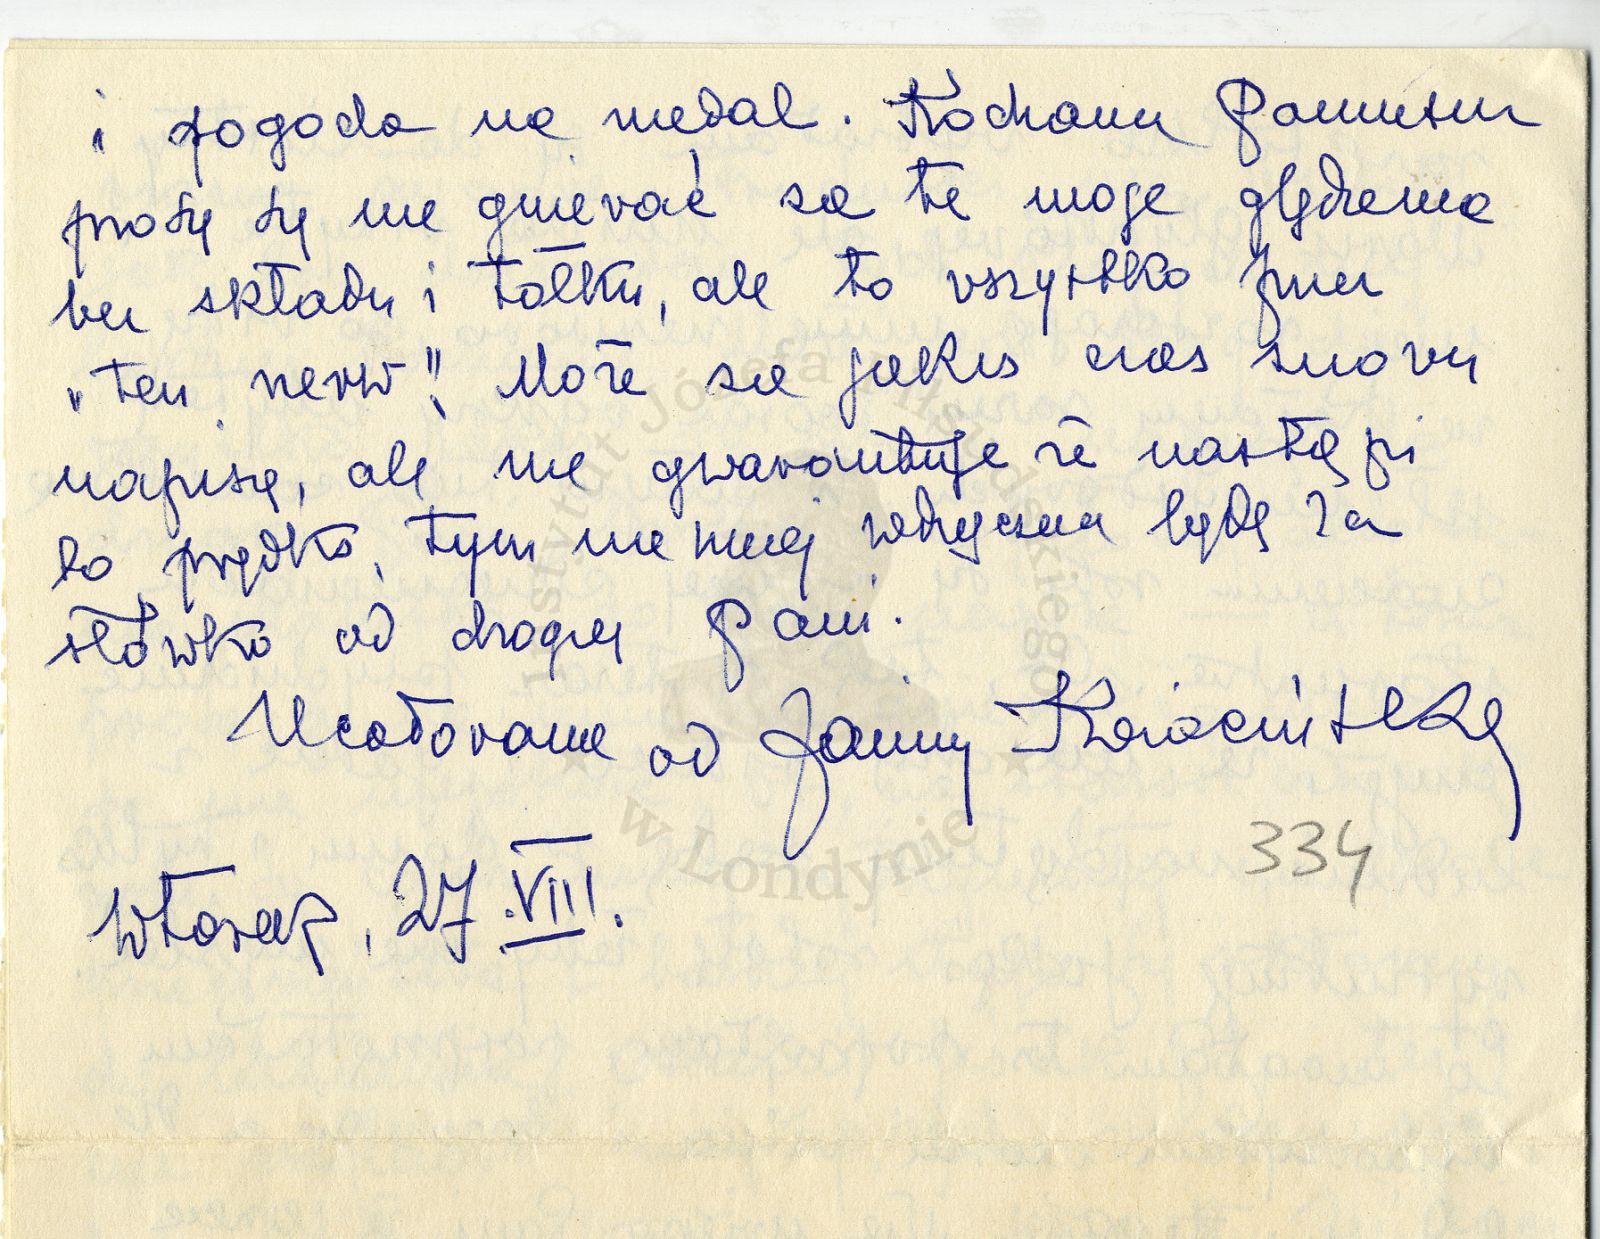 i pogoda na medal. Kochana Pamusiu
proszę się nie gniewać za te moje ględzenia
bez składu i tołku, ale to wszystko przez
"ten nerw"! Może za jakiś czas znowu
napiszę, ale nie gwarantuję że nastąpi
to prędko, tym nie mniej wdzięczna będę za
słówko od drogiej Pani.
Ucałowanie od Janiny
wtorek, 27.VIII.
334
Instytut Józefa Piłsudskiego
w Londynie